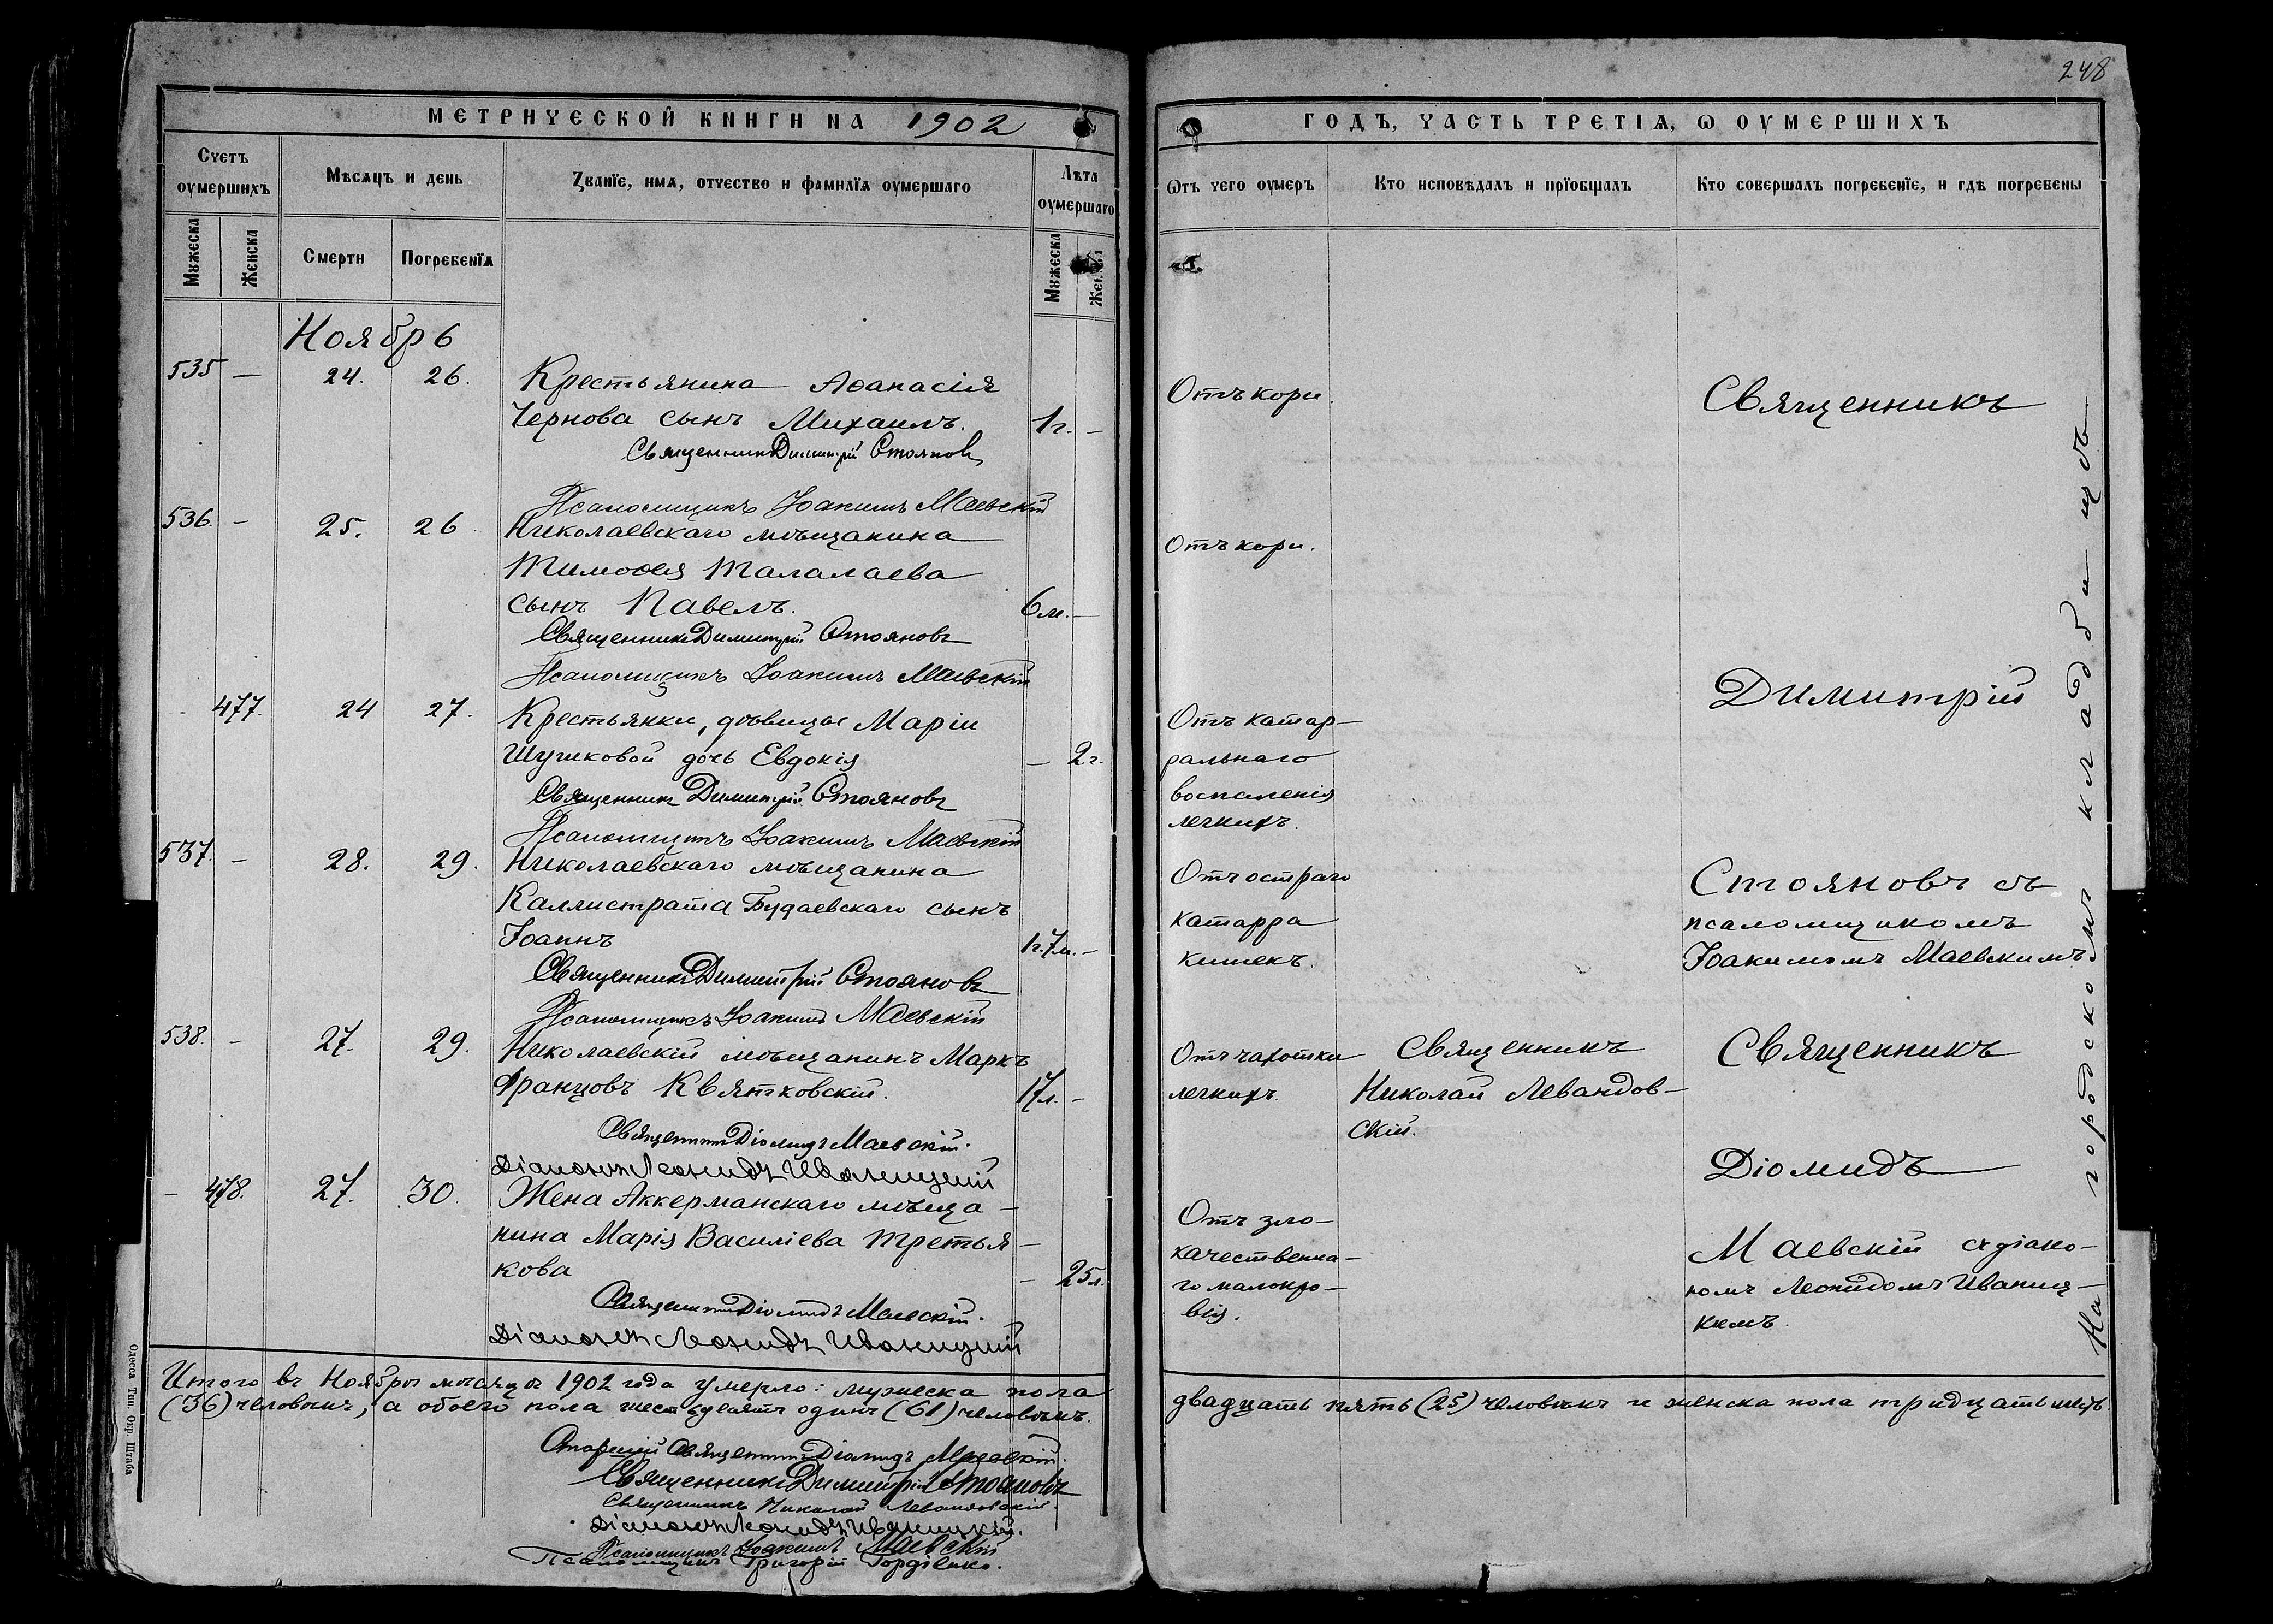 248
МЕТРИЧЕСКОЙ КНИГИ НА 1902
ГОДЪ, ЧАСТЬ ТРЕТІѦ, Ѡ ОУМЕРШИХЪ
Счетъ оумершихъ
Мѣсѧцъ и день
Званїе, имѧ, отчество и фамилїѧ оумершаго
Лѣта оумершаго
Ѿтъ чего оумеръ
Кто исповѣдалъ и прїобщалъ
Кто совершалъ погребенїе, и гдѣ погребены
Мужеска
Женска
Смерти
Погребенїѧ
Мужеска
Ноябрь
535 — 24. 26.
Крестьянина Аѳанасія
Чернова сынъ Михаилъ. 1 г. —
Священникъ Димитрій Стояновъ
Псаломщикъ Іоакимъ Маевскій
Отъ кори.
536. — 25. 26.
Николаевскаго мѣщанина
Тимоѳея Талалаева
сынъ Павелъ. 6 м. —
Священникъ Димитрій Стояновъ
Псаломщикъ Іоакимъ Маевскій
Отъ кори.
- 477. 24 27.
Крестьянки, дѣвицы Маріи
Шушковой дочь Евдокія — 2 г.
Священникъ Димитрій Стояновъ
Псаломщикъ Іоакимъ Маевскій
Отъ катар-
ральнаго
воспаленія
легкихъ.
537. — 28. 29.
Николаевскаго мѣщанина
Каллистрата Будаевскаго сынъ
Іоаннъ 1 г. 7 м. -
Священникъ Димитрій Стояновъ
Псаломщикъ Іоакимъ Маевскій
Отъ остраго
катарра
кишекъ.
Священникъ
Димитрій
Стояновъ съ
псаломщикомъ
Іоакимомъ Маевскимъ
538. - 27. 29.
Николаевскій мѣщанинъ Маркъ
Францовъ Квятковскій. 17 л. -
Священникъ Діомидъ Маевскій.
Діаконъ Леонидъ Иваницкій
Отъ чахотки
легкихъ.
Священникъ
Николай Левандов-
скій.
— 478. 27. 30.
Жена Аккерманскаго мѣща-
нина Марія Василіева Третья-
кова — 25 л.
Священникъ Діомидъ Маевскій.
Діаконъ Леонидъ Иваницкій
Отъ зло-
качественна-
го малокро-
вія.
Священникъ
Діомидъ
Маевскій съ діако-
номъ Леонидомъ Иваниц-
кимъ.
На городскомъ кладбищѣ
Итого въ Ноябрѣ мѣсяцѣ 1902 года умерло: мужеска пола двадцать пять (25) человѣкъ и женска пола тридцать шесть
(36) человѣкъ, а обоего пола шестьдесятъ одинъ (61) человѣкъ.
Старшій Священникъ Діомидъ Маевскій.
Священникъ Димитрій Стояновъ
Священникъ Николай Левандовскій.
Діаконъ Леонидъ Иваницкій.
Псаломщикъ Іоакимъ Маевскій
Псаломщикъ Григорій Гордіенко.
Одесса Тип. Окр. Штаба